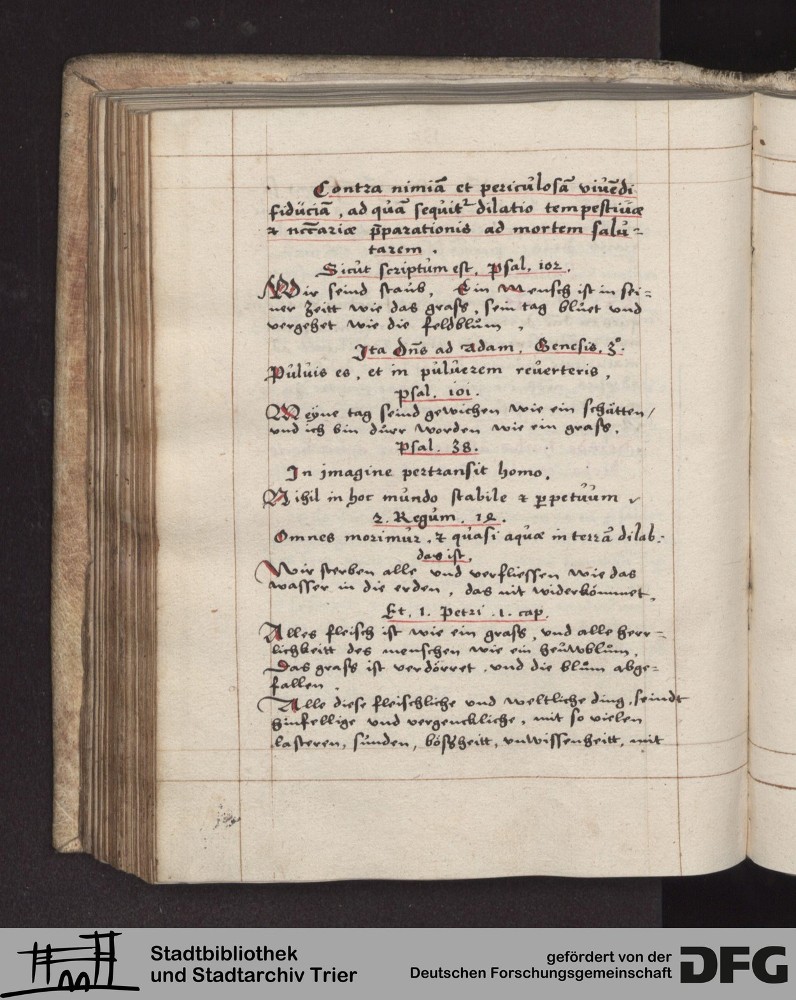 Contra nimiā et periculosā viuēdi
fiduciā, ad quā sequitr dilatio tempestiuæ
& nccāriæ p̄parationis ad mortem salu=
tarem.
Sicut scriptum est, Psal. 102.
Wir seind staub, Ein Mensch ist in sei=
ner Zeitt wie das grass, sein tag bluet vnd
vergehet wie die feldblum,
Ita Dn̄s ad Adam, Genesis. 3°.
Puluis es, et in puluerem reuerteris,
Psal. 101.
Meyne tag seind gewichen wie ein schätten/
vnd ich bin duer worden wie ein grass.
Psal. 38.
In imagine pertransit homo.
Nihil in hoc mundo stabile & ꝑpetuum
2. Regum. 14.
Omnes morimur, & quasi aquæ in terrā dilab.:
das ist,
Wir sterben alle vnd verfliessen wie das
wasser in die erden, das nit widerkömmet.
Et. 1. Petri .1. cap.
Alles fleisch ist wie ein grass, vnd alle herr=
lichkeitt des menschen wie ein heuwblum,
Das grass ist verdörret, vnd die blum abge=
fallen.
Alle diese fleischliche vnd weltliche ding, seindt
hinfellige vnd vergenckliche, mit so vielen
lasteren, sunden, bössheitt, vnwissenheitt, mit
Stadtbibliothek
und Stadtarchiv Trier
gefördert von der
Deutschen Forschungsgemeinschaft
DFG